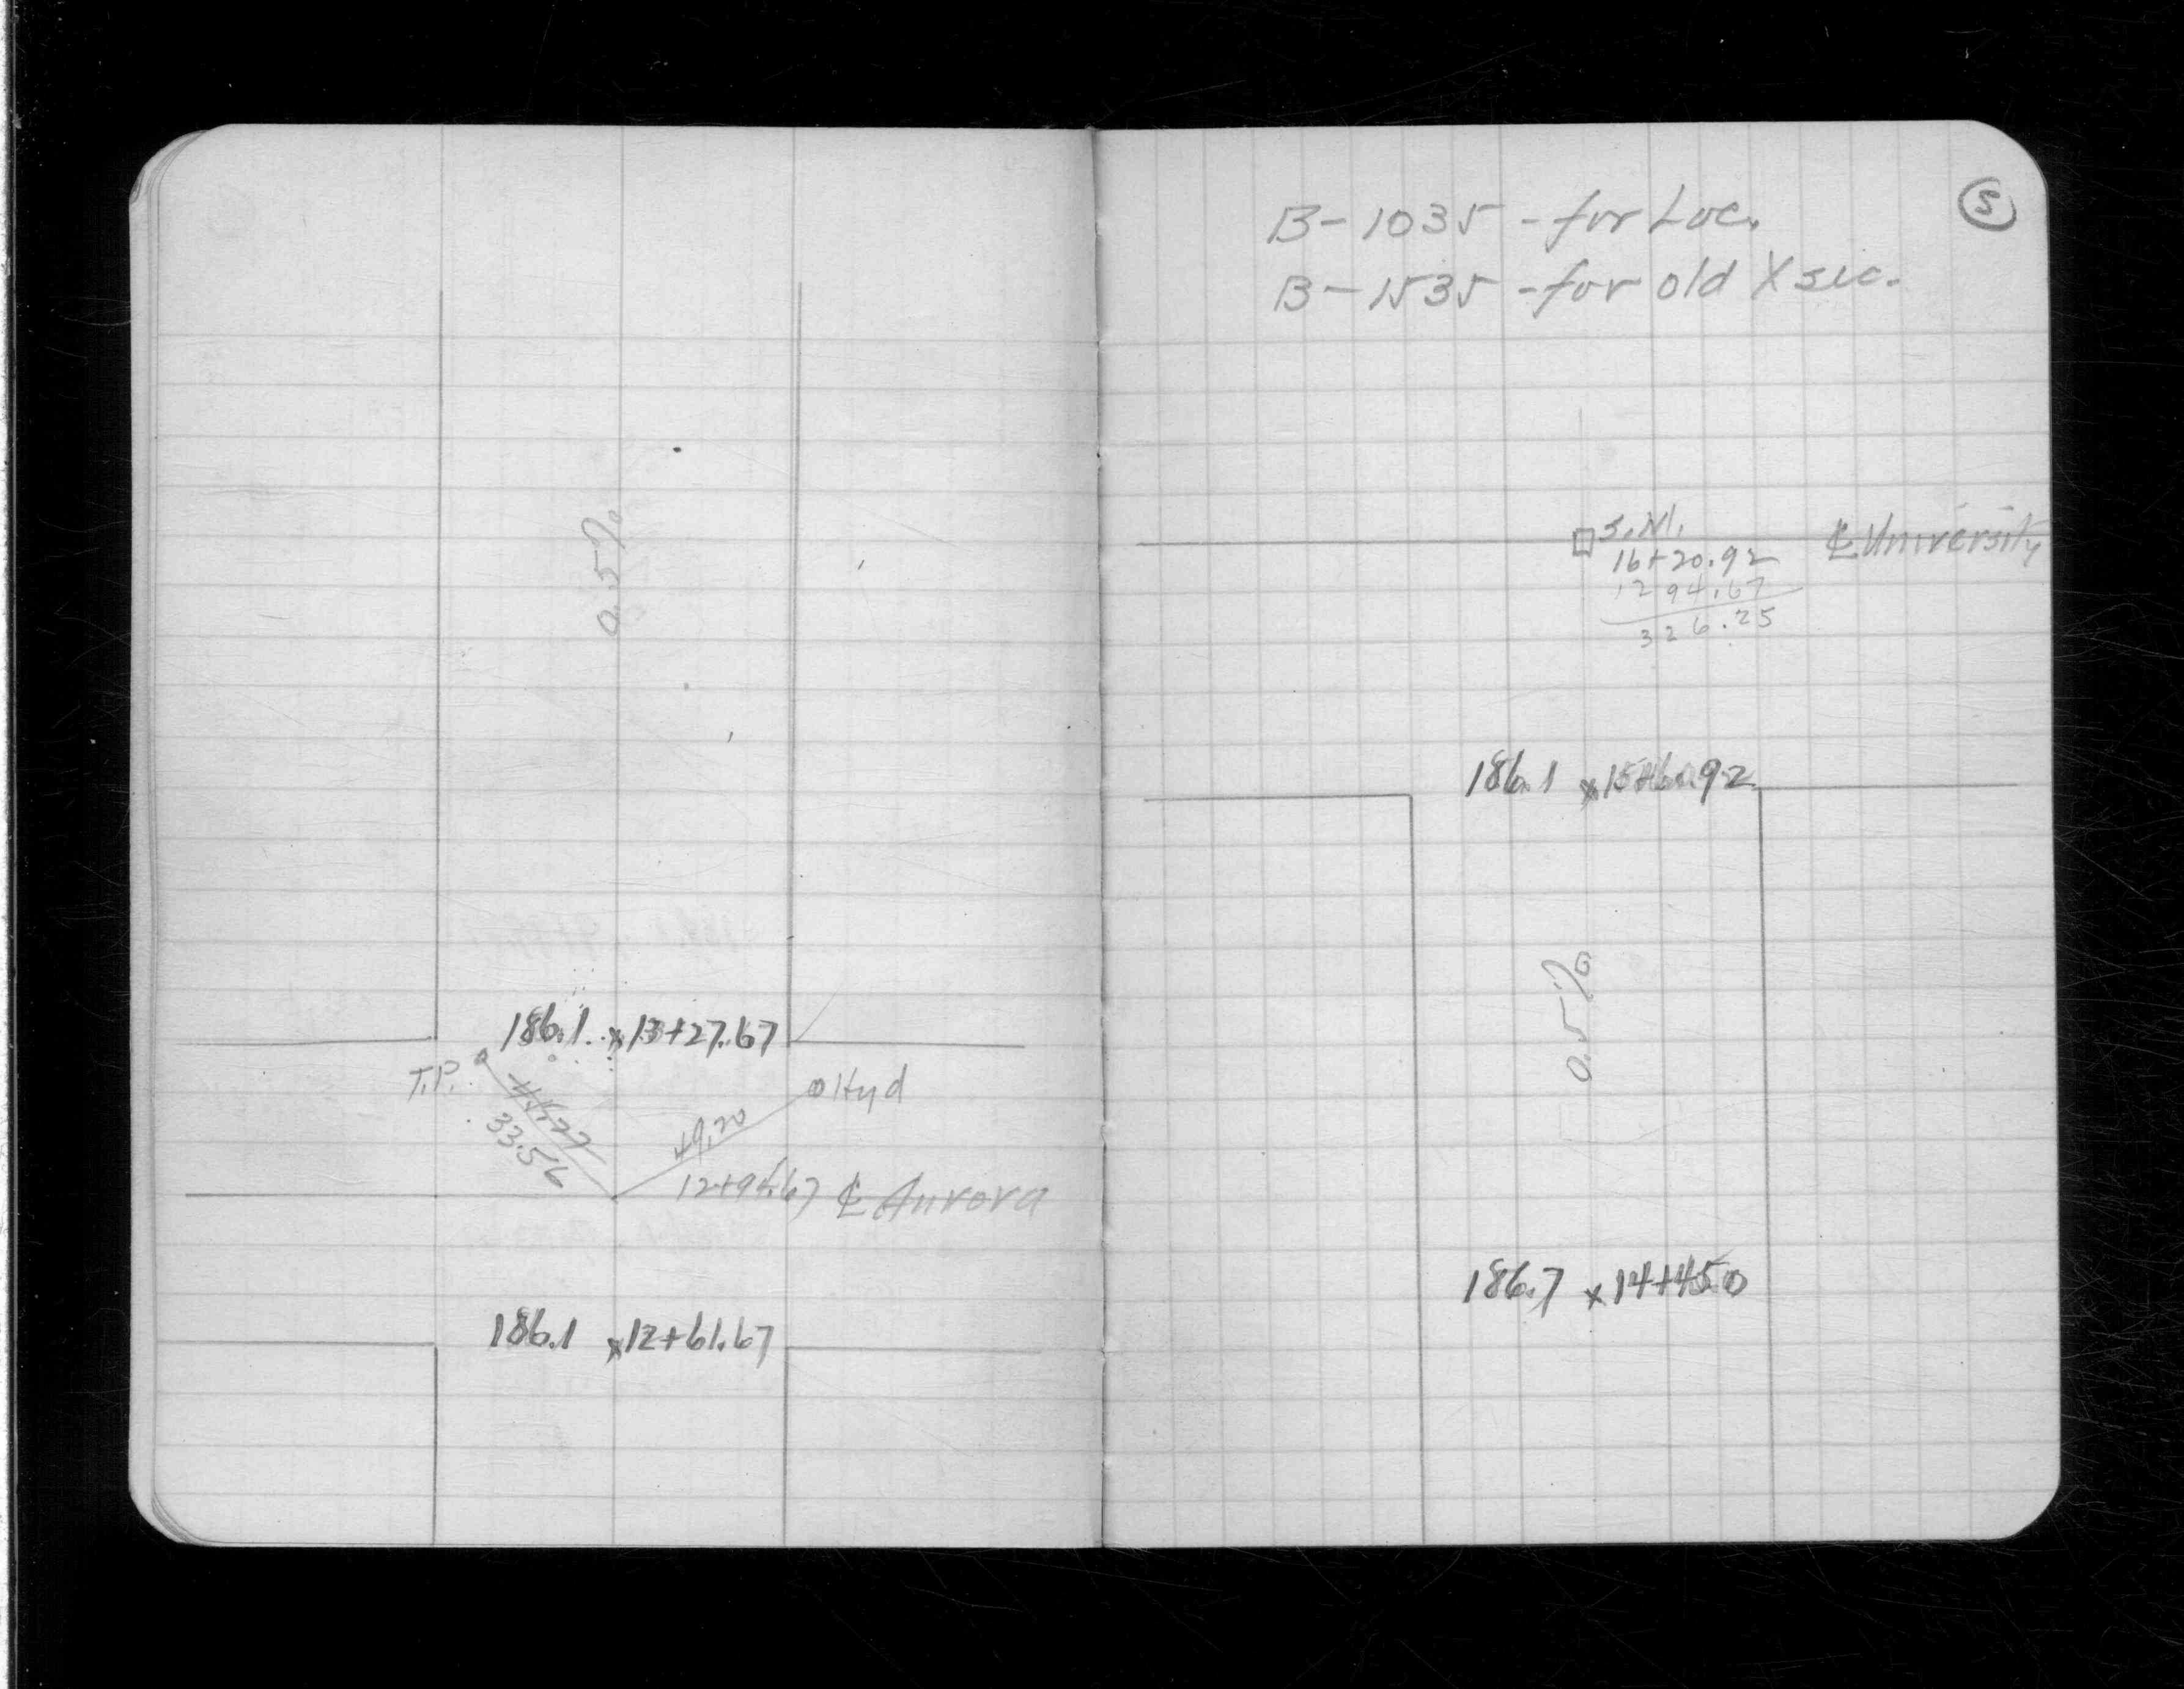 0.5%
186.1 x 13+27.67
T.P.
Hyd
33.56
49.20
12+94.67 ℄ Aurora
186.1 x 12+61.67
5
B-1035 - for Loc.
B-1535 - for old X sec.
S.M.
℄ University
16+20.92
12 94.67
326.25
186.1 x 15+60.92
0.5%
186.7 x 14+45.0